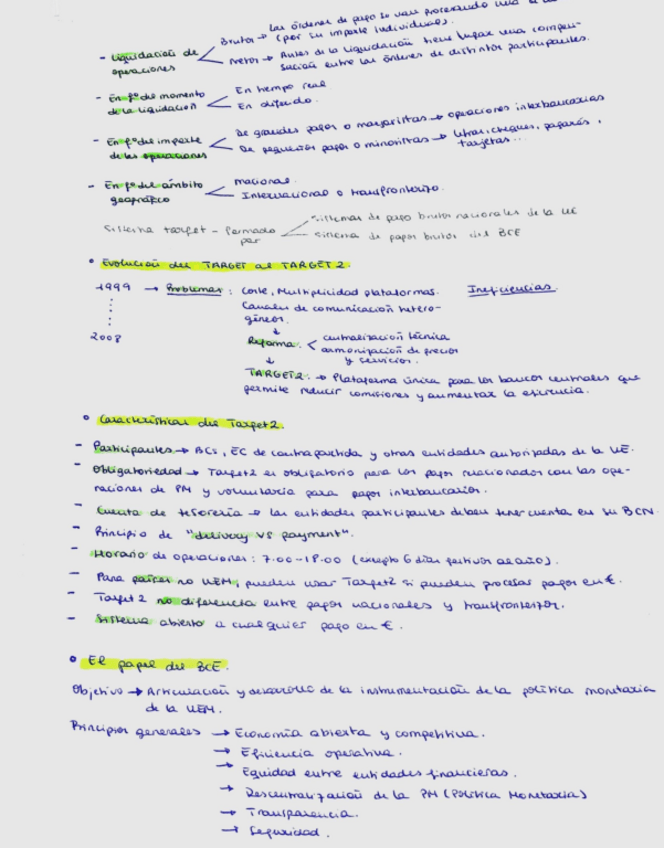 Las órdenes de pago se van procesando una a
Brutos → (por su importe individual).
- Liquidación de operaciones
Netos → Antes de la liquidación tiene lugar una compensación entre las órdenes de distintos participantes.
- En fº del momento de la liquidación
En tiempo real.
En diferido.
- En fº del importe de las operaciones
De grandes pagos o mayoristas → operaciones interbancarias
De pequeños pagos o minoristas → letras, cheques, pagarés, tarjetas...
- En fº del ámbito geográfico
Nacional.
Internacional o transfronterizo.
Sistema target - formado por
sistemas de pago brutos nacionales de la UE
sistema de pagos brutos del BCE
• Evolución del TARGET al TARGET 2.
1999 → Problemas: Coste, Multiplicidad plataformas. Ineficiencias.
Canales de comunicación heterogéneos.
↓
2008 Reforma: centralización técnica
armonización de precios y servicios.
↓
TARGET2: → Plataforma única para los bancos centrales que
permite reducir comisiones y aumentar la eficiencia.
• Características del Target2.
- Participantes → BCs, EC de contrapartida y otras entidades autorizadas de la UE.
- Obligatoriedad → Target2 es obligatorio para los pagos relacionados con las ope-
raciones de PM y voluntaria para pagos interbancarios.
- Cuenta de tesorería → las entidades participantes deben tener cuenta en su BCN.
- Principio de "delivery vs payment".
- Horario de operaciones: 7:00-18:00 (excepto 6 días festivos al año).
- Para países no UEM, pueden usar Target2 si pueden procesar pagos en €.
- Target 2 no diferencia entre pagos nacionales y transfronterizos.
- Sistema abierto a cualquier pago en €.
• El papel del BCE.
Objetivo → Articulación y desarrollo de la instrumentación de la política monetaria
de la UEM.
Principios generales → Economía abierta y competitiva.
→ Eficiencia operativa.
→ Equidad entre entidades financieras.
→ Descentralización de la PM (Política Monetaria)
→ Transparencia.
→ Seguridad.